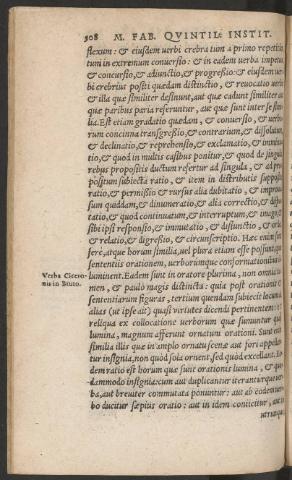 508 M. FAB. QVINTIL. INSTIT.
flexum: & eiusdem uerbi crebra tum a primo repetitio,
tum in extremum conuersio: & in eadem uerba impetus
& concursio, & adiunctio, & progressio: & eiusdem uer
bi crebrius positi quædam distinctio, & reuocatio uerbi
& illa quæ similiter desinunt, aut quæ cadunt similiter
quæ paribus paria referuntur, aut quæ sunt inter se simi
lia. Est etiam gradatio quædam, & conuersio, & uerbo
rum concinna transgressio, & contrarium, & dissolutum
& declinatio, & reprehensio, & exclamatio, & imminu
tio, & quod in multis casibus ponitur, & quod de singulis
rebus propositis ductum refertur ad singula, & ad pro
positum subiecta ratio, & item in distributis supposita
ratio, & permissio, & rursus alia dubitatio, & improui
sum quiddam, & dinumeratio, & alia correctio, & dißi
tatio, & quod continuatum, & interruptum, & imago, &
sibi ipsi responsio, & immutatio, & disiunctio, & ordo
& relatio, & digressio, & circunscriptio. Hæc enim
ferè, atque horum similia, uel plura etiam esse possunt
sententijs orationem, uerborumque conformationibus
Verba Cicero-
nis in Bruto.
luminent. Eadem sunt in oratore plurima, non omnia
men, & paulò magis distincta: quia post orationis
sententiarum figuras, tertium quendam subiecit locum
alias (ut ipse ait) quasi uirtutes dicendi pertinentem:
reliqua ex collocatione uerborum quæ sumuntur qua
lumina, magnum afferunt ornatum orationi. Sunt enim
similia illis quæ in amplo ornatu scenæ aut fori appellan
tur insignia, non quòd sola ornent, sed quòd excellant.
dem ratio est horum quæ sunt orationis lumina, & quo
dammodo insignia: cum aut duplicantur iteranturque uer
ba, aut breuiter commutata ponuntur: aut ab eodem uer
bo ducitur sæpius oratio: aut in idem conijcitur, aut in
utrunque